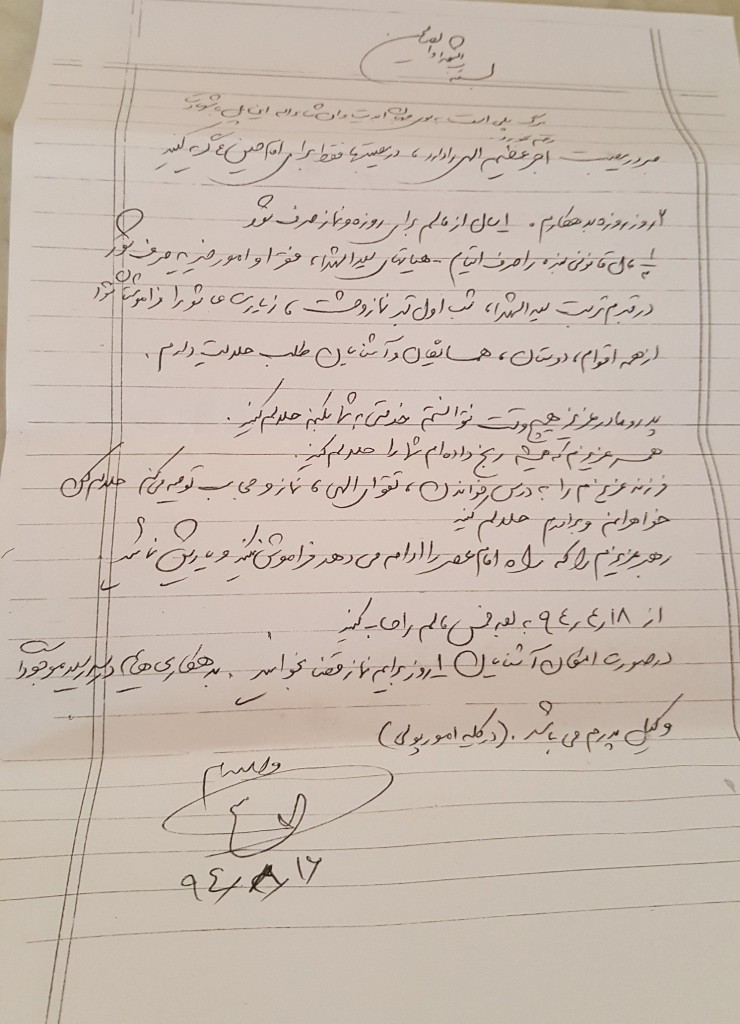 بسم رب الشهداء والصدیقین
مرگ پلی است
صبر در مصیبت اجر عظیم الهی را دارد، در مصیبتها فقط برای امام حسین ع گریه کنید
۶ روز روزه بدهکارم. ۱ سال از مالم برای روزه و نماز صرف شود
مال قانونی بنده را صرف ایتام - هیئتهای سید الشهدا، فقرا و امور خیریه صرف شود
در قبرم تربت سید الشهدا، شب اول قبر نماز وحشت، زیارت عاشورا فراموش نشود
از همه اقوام، دوستان، همسایگان و آشنایان طلب حلالیت دارم.
پدر و مادر عزیزم هیچ وقت نتوانستم خدمتی به شما بکنم حلالم کنید.
همسر عزیزم که همیشه رنج داده ام شما را حلالم کنید.
فرزند عزیزم را به درس خواندن، تقوای الهی، نماز و حجاب توصیه می کنم حلالم کن
خواهرانم و برادرم حلالم کنید
رهبر عزیزم را که راه امام عصر را ادامه می دهد فراموش نکنید و یاریش نمائید.
از ۹۴٫۴٫۱۸ به بعد خمس مالم را حساب کنید
در صورت امکان آشنایان ۱ روز برایم نماز قضا بخوانند. بدهکاری هایم
وکیل پدرم می باشد. (در کلیه امور پولی)
والسلام
۹۴٫۸٫۱۶